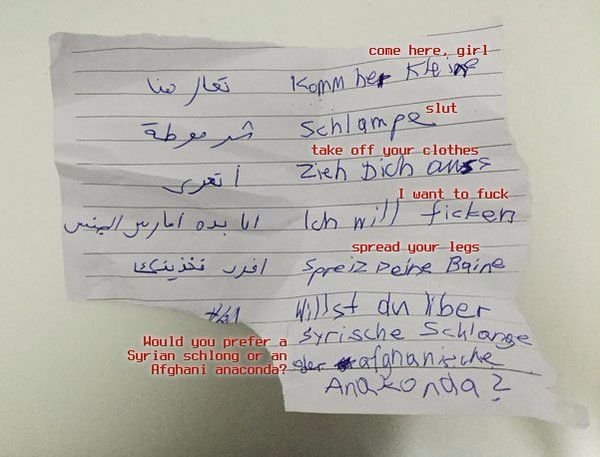 come here, girl
تعال هنا Komm her Kleine
slut
شرموطة Schlampe
take off your clothes
أتعرى Zieh Dich aus
I want to fuck
انا بده امارس الجنس Ich will ficken
spread your legs
افرد فخذيك Spreiz Deine Baine
Willst du liber
syrische Schlange
oder afghanische
Anakonda?
Would you prefer a
Syrian schlong or an
Afghani anaconda?